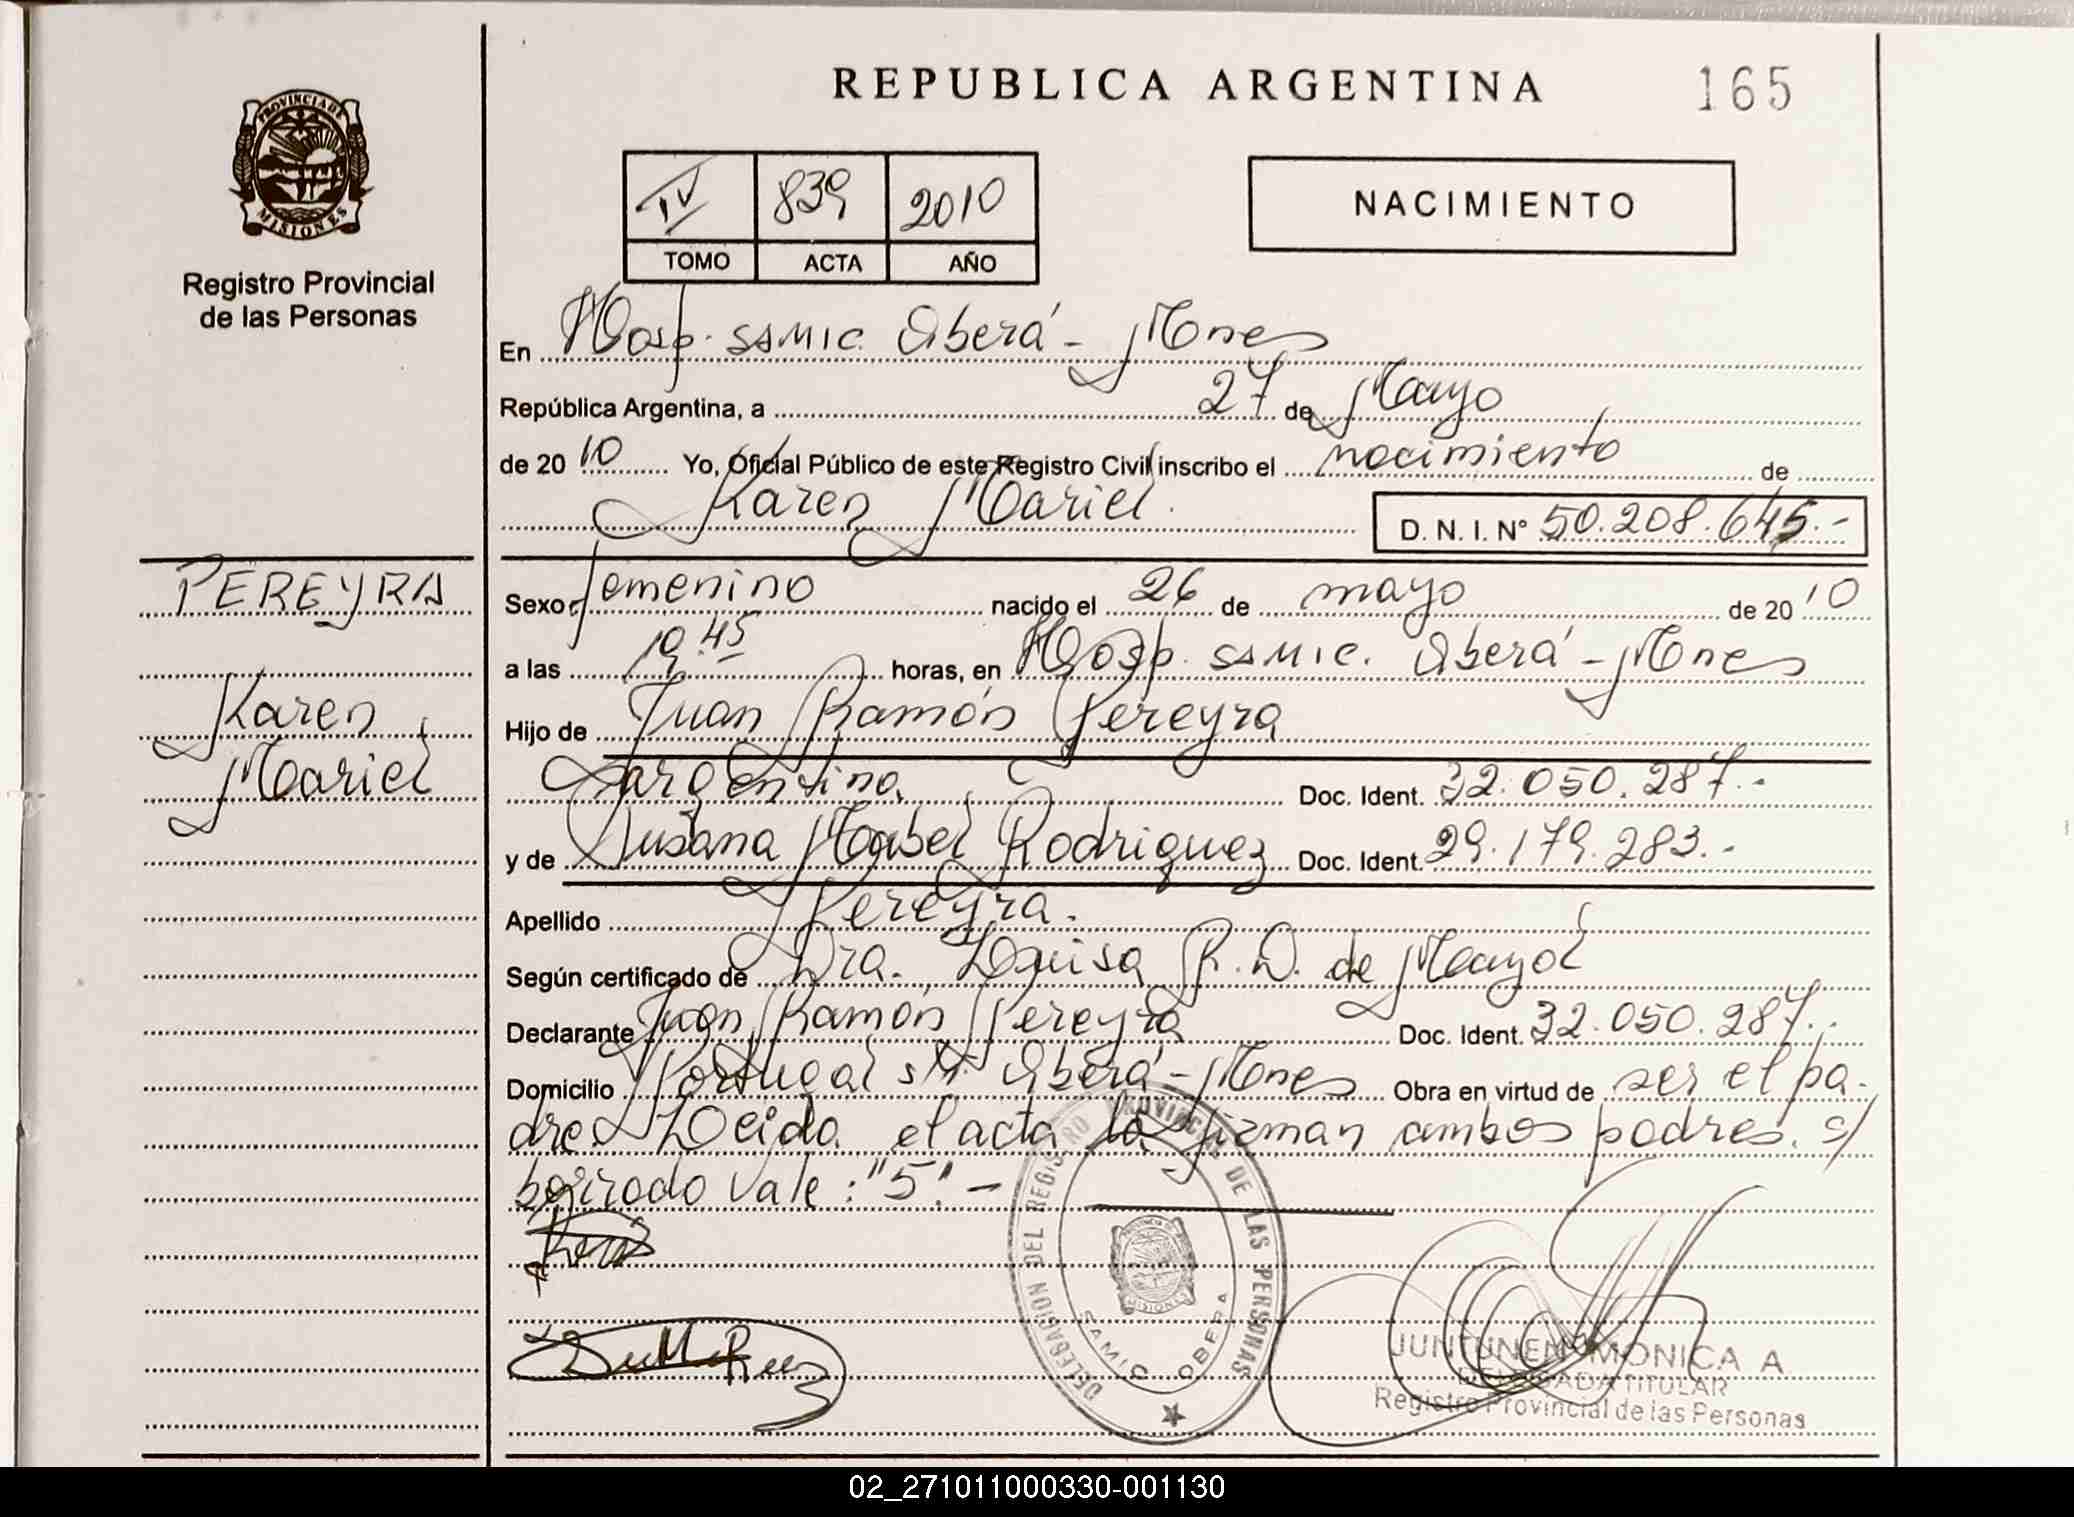 REPUBLICA ARGENTINA
165
PROVINCIA DE
MISIONES
Registro Provincial
de las Personas
IV 839 2010
TOMO ACTA AÑO
NACIMIENTO
En Hosp. SAMIC. Oberá - Mnes
República Argentina, a 27 de Mayo
de 2010 Yo, Oficial Público de este Registro Civil inscribo el nacimiento de
Karen Mariel. D. N. I. N° 50.208.645.-
PEREYRA
Karen
Mariel
Sexo femenino nacido el 26 de mayo de 2010
a las 19.45 horas, en Hosp. SAMIC. Oberá - Mnes
Hijo de Juan Ramón Pereyra
Argentino. Doc. Ident. 32.050.287.-
y de Susana Mabel Rodriguez Doc. Ident. 29.179.283.-
Apellido Pereyra.
Según certificado de Dra. Luisa R. D. de Mayol
Declarante Juan Ramón Pereyra Doc. Ident. 32.050.287.-
Domicilio Portugal s/n. Oberá - Mnes Obra en virtud de ser el pa-
dre. Leida el acta la firman ambos padres. s/
borrado vale: "5".-
DELEGACION DEL REGISTRO PROVINCIAL DE LAS PERSONAS
MISIONES
SAMIC OBERA
JUNTUNEN MONICA A
DELEGADA TITULAR
Registro Provincial de las Personas
02_271011000330-001130